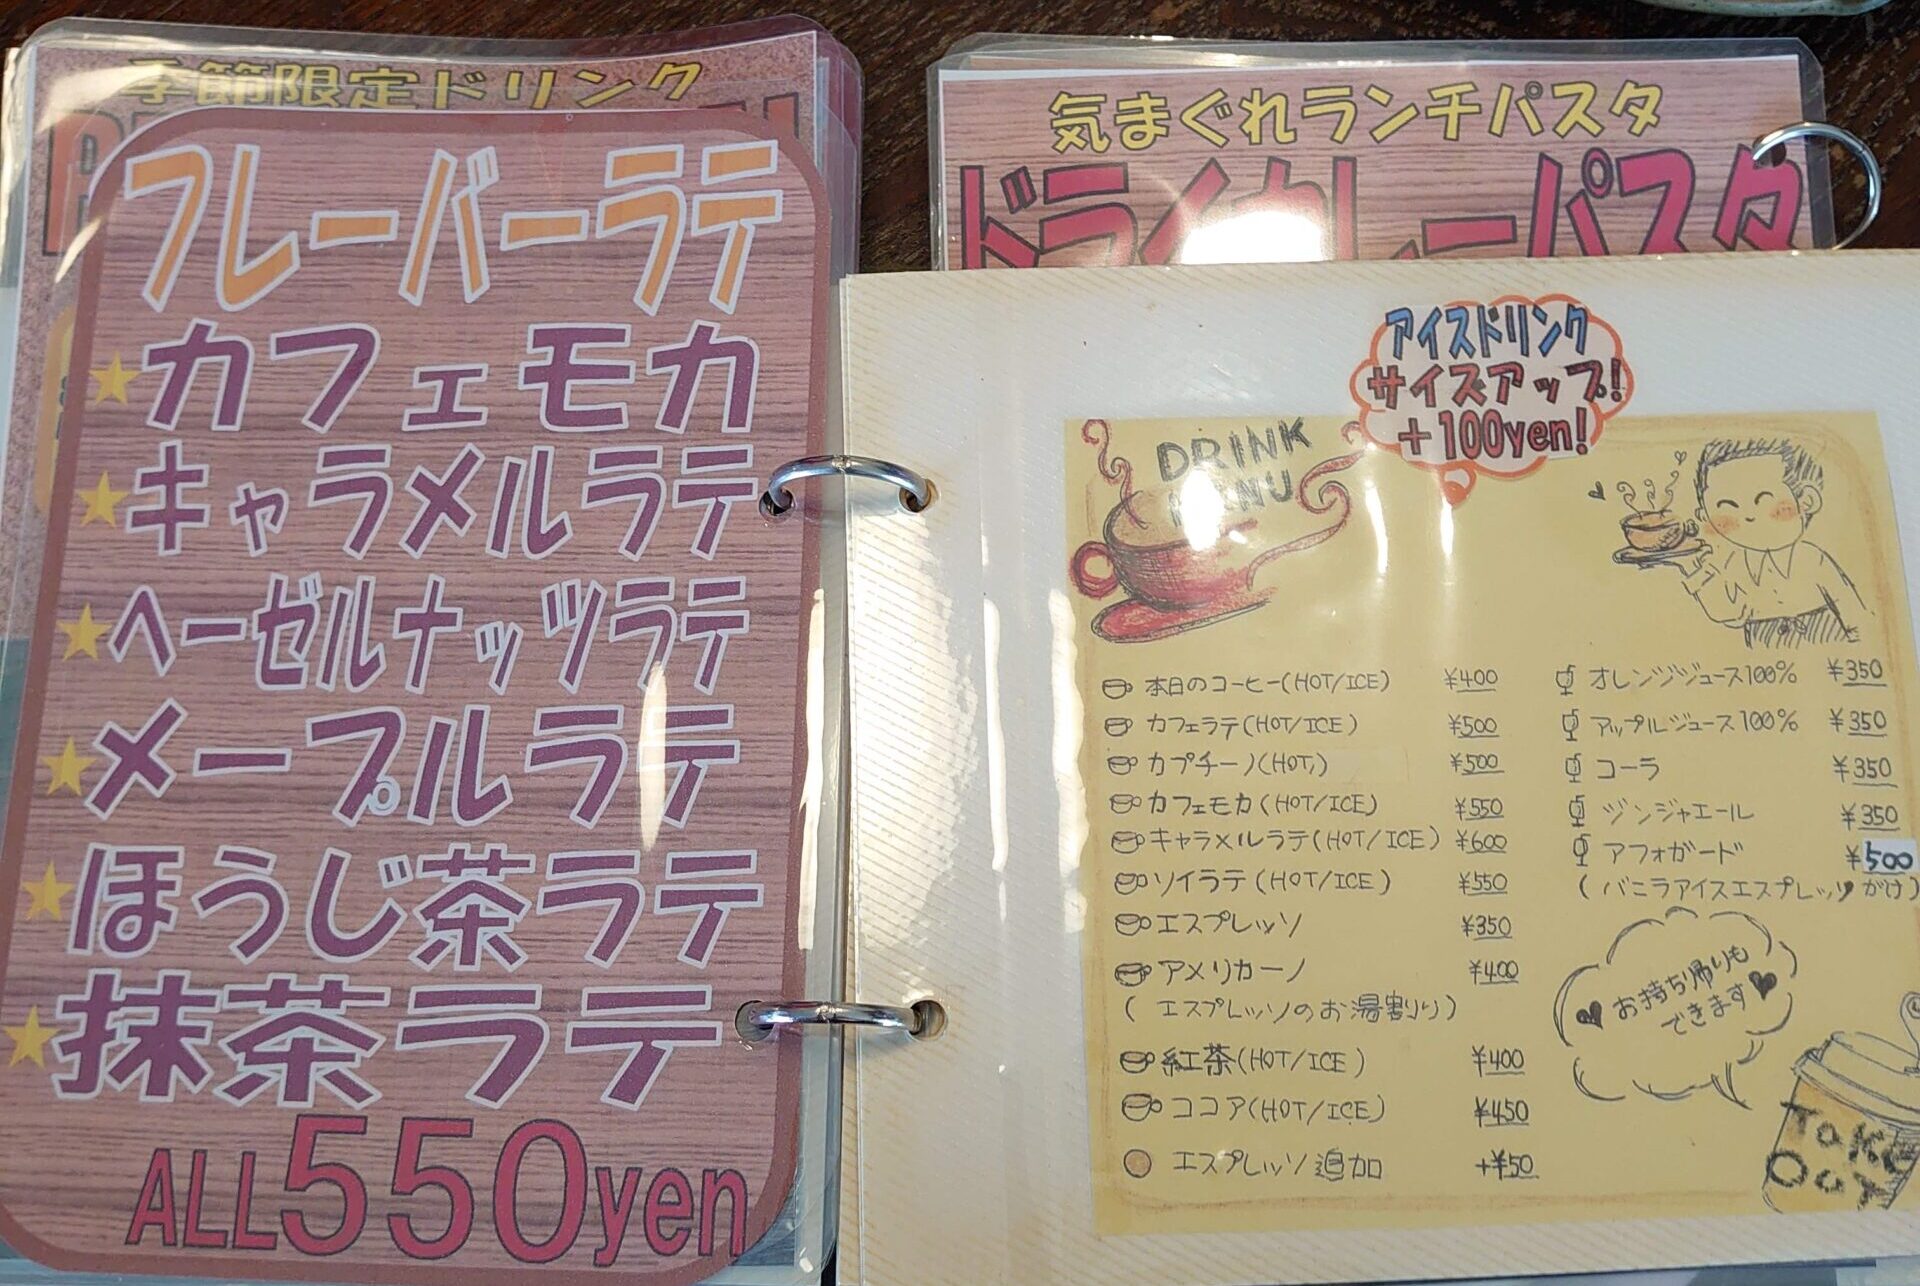 季節限定ドリンク
フレーバーラテ
カフェモカ
キャラメルラテ
ヘーゼルナッツラテ
メープルラテ
ほうじ茶ラテ
抹茶ラテ
ALL550yen
気まぐれランチパスタ
ドライカレーパスタ
アイスドリンク
サイズアップ!
+100yen!
DRINK
MENU
本日のコーヒー(HOT/ICE) ¥400
カフェラテ(HOT/ICE) ¥500
カプチーノ(HOT) ¥500
カフェモカ(HOT/ICE) ¥550
キャラメルラテ(HOT/ICE) ¥600
ソイラテ(HOT/ICE) ¥550
エスプレッソ ¥350
アメリカーノ ¥400
(エスプレッソのお湯割り)
紅茶(HOT/ICE) ¥400
ココア(HOT/ICE) ¥450
エスプレッソ追加 +¥50
オレンジジュース100% ¥350
アップルジュース100% ¥350
コーラ ¥350
ジンジャエール ¥350
アフォガード ¥500
(バニラアイスエスプレッソがけ)
お持ち帰りも
できます
TAKE
OUT